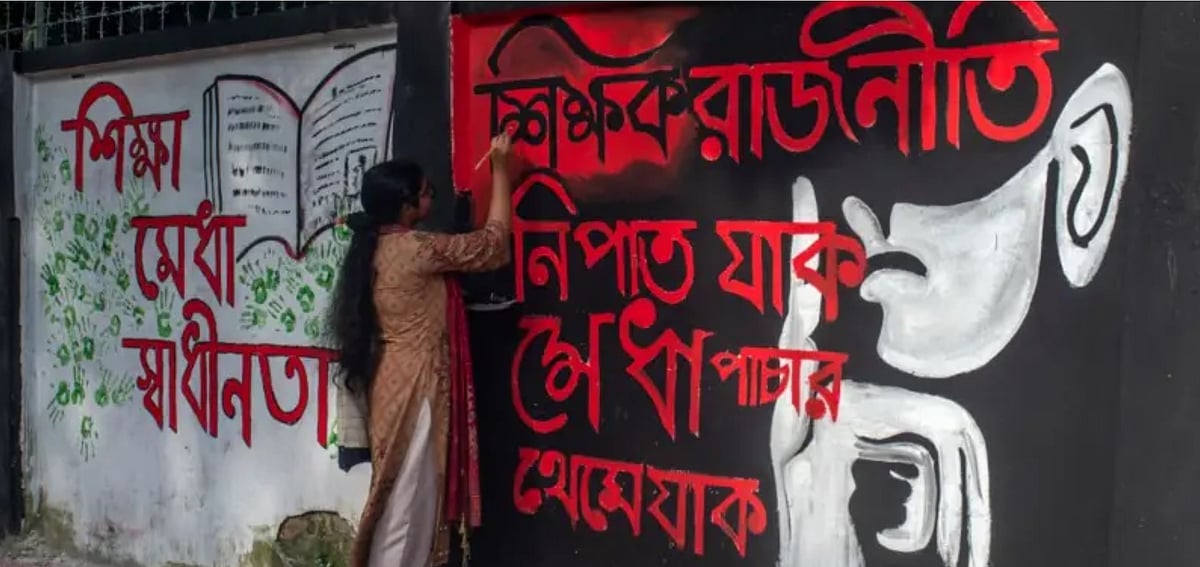 শিক্ষা
মেধা
স্বাধীনতা
শিক্ষক রাজনীতি
নিপাত যাক
মেধা পাচার
থেমে যাক